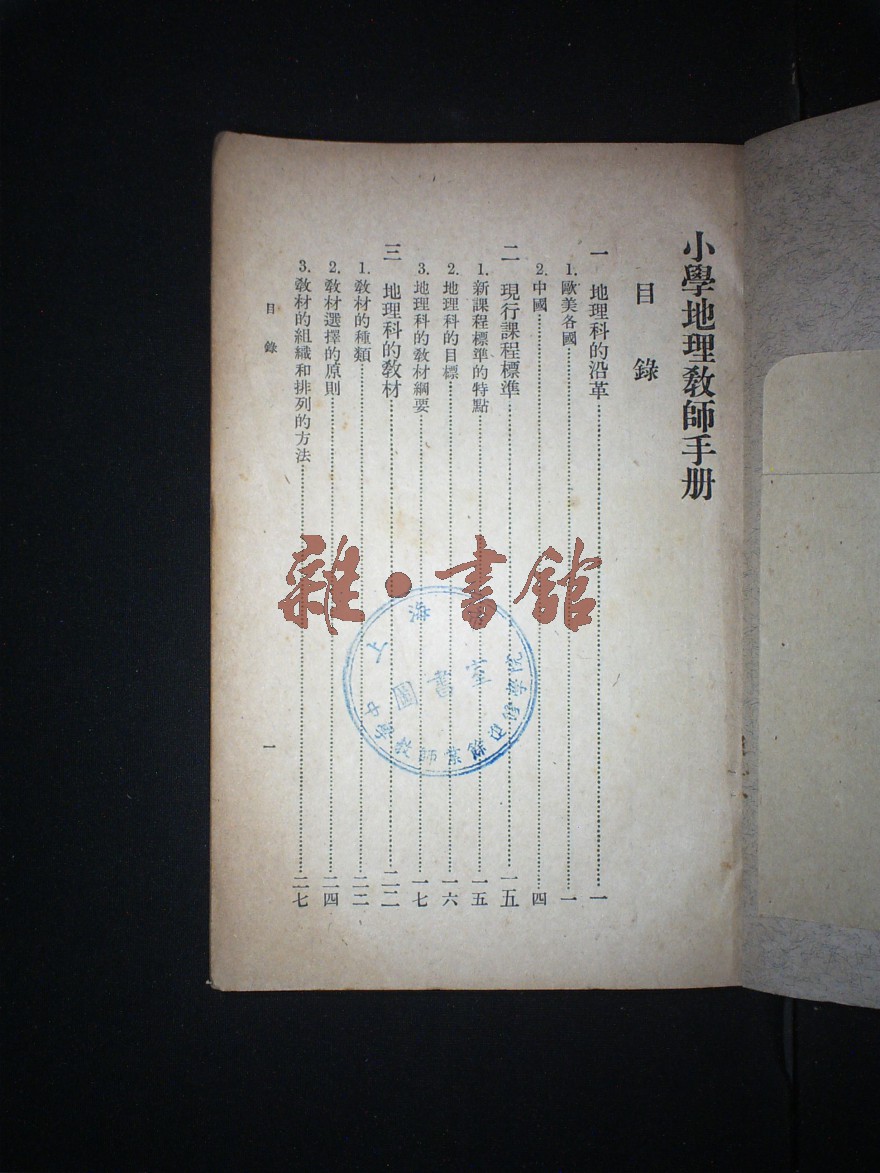 小學地理教師手册
目錄
一 地理科的沿革……一
1.歐美各國……一
2.中國……四
二 現行課程標準……一五
1.新課程標準的特點……一五
2.地理科的目標……一六
3.地理科的教材綱要……一七
三 地理科的教材……二二
1.教材的種類……二二
2.教材選擇的原則……二四
3.教材的組織和排列的方法……二七
目錄
一
雜·書館
海
圖書室
中學教師業餘進修學院